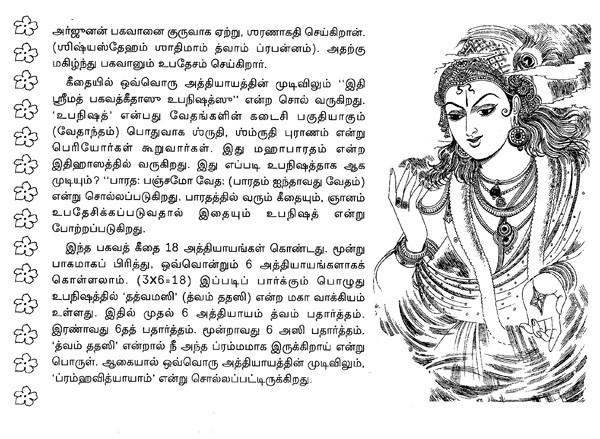 அர்ஜுனன் பகவானை குருவாக ஏற்று, ஶரணாகதி செய்கிறான்.
(ஶிஷ்யஸ்தேஹம் ஶாதிமாம் த்வாம் ப்ரபன்னம்). அதற்கு
மகிழ்ந்து பகவானும் உபதேசம் செய்கிறார்.
கீதையில் ஒவ்வொரு அத்தியாயத்தின் முடிவிலும் ''இதி
ஸ்ரீமத் பகவத்கீதாஸு உபநிஷத்ஸு'' என்ற சொல் வருகிறது.
'உபநிஷத்' என்பது வேதங்களின் கடைசி பகுதியாகும்
(வேதாந்தம்) பொதுவாக ஶ்ருதி, ஸ்ம்ருதி புராணம் என்று
பெரியோர்கள் கூறுவார்கள். இது மஹாபாரதம் என்ற
இதிஹாஸத்தில் வருகிறது. இது எப்படி உபநிஷத்தாக ஆக
முடியும்? ''பாரத: பஞ்சமோ வேத: (பாரதம் ஐந்தாவது வேதம்)
என்று சொல்லப்படுகிறது. பாரதத்தில் வரும் கீதையும், ஞானம்
உபதேசிக்கப்படுவதால் இதையும் உபநிஷத் என்று
போற்றப்படுகிறது.
இந்த பகவத் கீதை 18 அத்தியாயங்கள் கொண்டது. மூன்று
பாகமாகப் பிரித்து, ஒவ்வொன்றும் 6 அத்தியாயங்களாகக்
கொள்ளலாம். (3X6=18) இப்படிப் பார்க்கும் பொழுது
உபநிஷத்தில் 'தத்வமஸி' (த்வம் ததஸி) என்ற மகா வாக்கியம்
உள்ளது. இதில் முதல் 6 அத்தியாயம் த்வம் பதார்த்தம்.
இரண்டாவது 6தத் பதார்த்தம். மூன்றாவது 6 அஸி பதார்த்தம்.
'த்வம் ததஸி' என்றால் நீ அந்த ப்ரம்மமாக இருக்கிறாய் என்று
பொருள். ஆகையால் ஒவ்வொரு அத்தியாயத்தின் முடிவிலும்,
'ப்ரம்ஹவித்யாயாம்' என்று சொல்லப்பட்டிருக்கிறது.